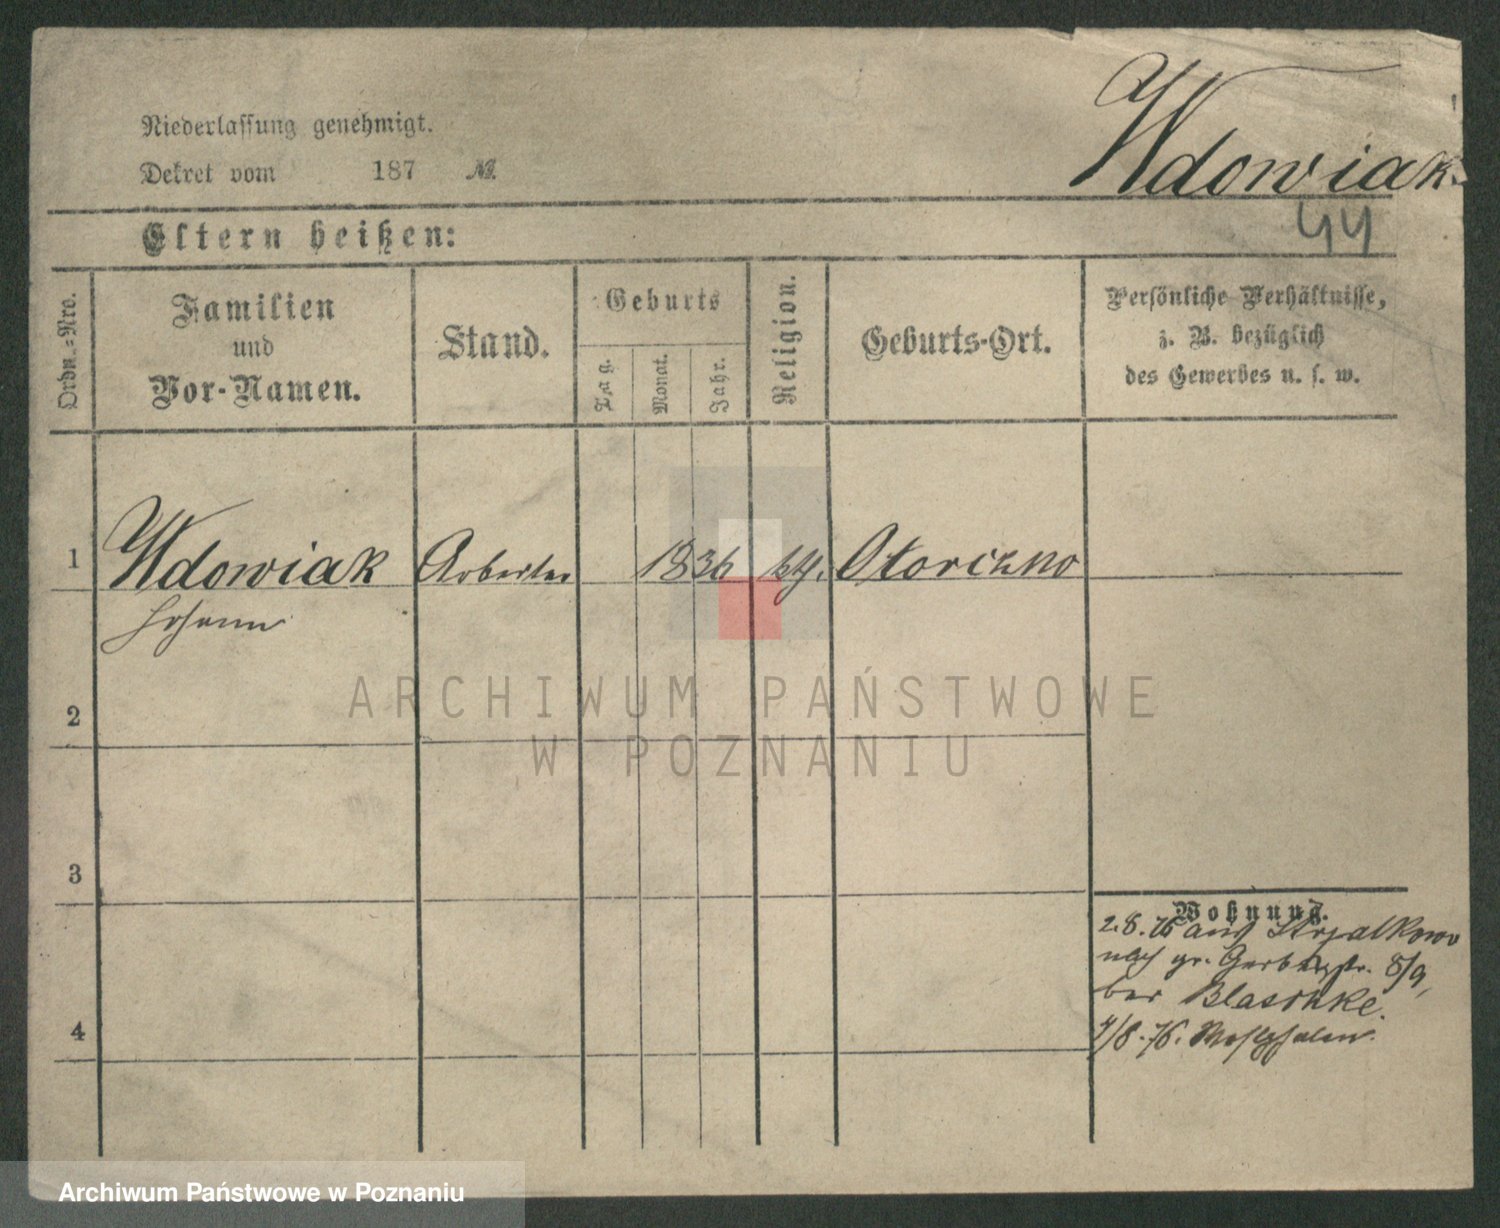 Niederlassung genehmigt.
Dekret vom 187 №.
Wdowiak.
44
Eltern heißen:
Ordn.=Nro.
Familien
und
Vor-Namen.
Stand.
Geburts
Tag.
Monat.
Jahr.
Religion.
Geburts-Ort.
Persönliche Verhältnisse,
z. B. bezüglich
des Gewerbes u. s. w.
1 Wdowiak Arbeiter 1836 kth. Otorczno
Johann
2
3
4
Wohnung.
2.8.76 aus Strzalkowo
nach gr. Gerberstr. 8/9,
bei Blaschke.
4/8.76. Westphalen.
ARCHIWUM PAŃSTWOWE
W POZNANIU
Archiwum Państwowe w Poznaniu